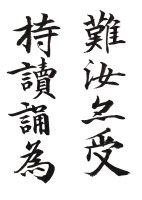 難汝亦受
持讀誦為